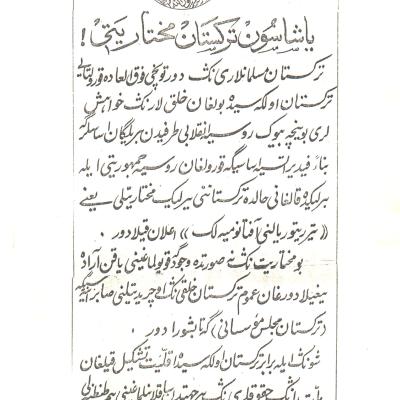 یاشاسون ترکستان مختاریتی!
ترکستان مسلمانلاری نڭ دورتونچی فوق العاده قورولتایی
ترکستان اولکه سیده بولغان خلق لار نڭ خواهش
لری بوینچه بیوک روسیه انقلابی طرفیدن بیریلگان اساسلرگه
بناءً فیدیراتسیه اساسیگه قورولغان روسیه جمهوریتی ایله
بیرلیکده قالغانی حالده ترکستاننی بیرلیک مختاریتلی یعنی
«تیریتوریالنی آفتانومیه لک» اعلان قیلادور.
بو مختاریت نڭ نه صورتده وجودگه قویولماغینی یاقن آراده
ییغیلادورغان عموم ترکستان خلقی نڭ اوچریدیتلنی صابرانیه سیگه
(ترکستان مجلس مؤسسانی) گه تابشورادور.
شونڭ ایله برابر ترکستان اولکه سیده اقلیت تشکیل قیلغان